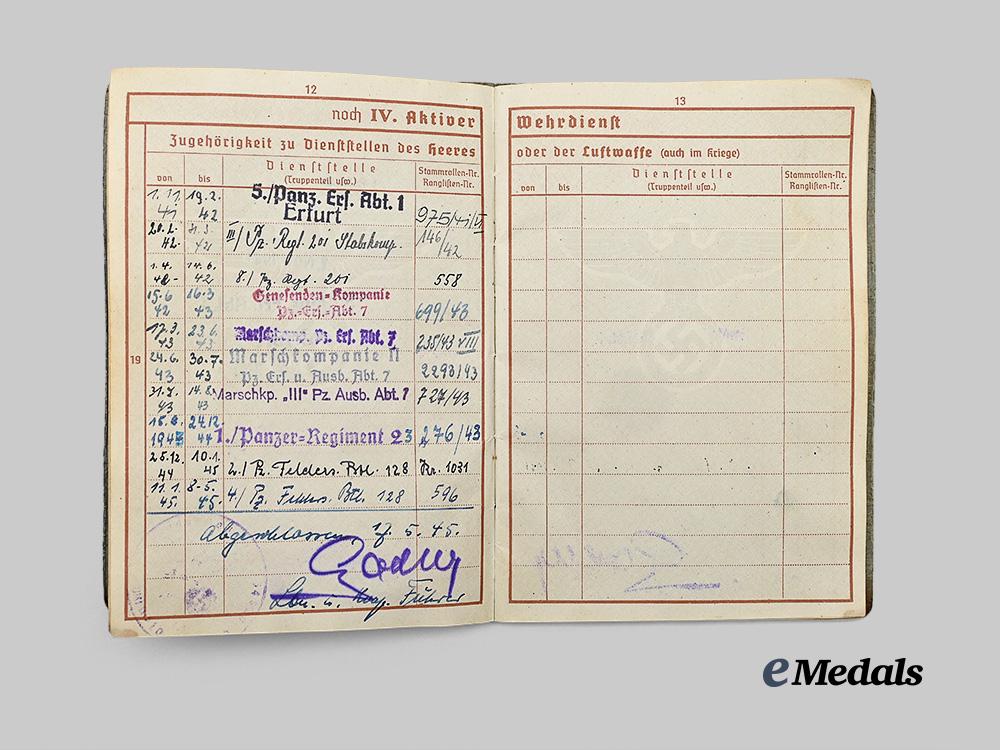 12
noch IV. Aktiver
Zugehörigkeit zu Dienststellen des Heeres
von
bis
Dienststelle
(Truppenteil usw.)
Stammrollen-Nr.
Ranglisten-Nr.
19
1. 11. 41 19. 2. 42 5./Panz. Ers. Abt. 1
Erfurt 975/41/VI
20. 2. 42 31. 3. 42 III/Pz. Regt. 201 Stabskomp. 146/42
1. 4. 42 14. 6. 42 8./Pz. Regt. 201 558
15. 6 42 16. 3 43 Genesenden=Kompanie
Pz.=Ers.=Abt. 7 699/43
17. 3. 43 23. 6. 43 Marschkomp. Pz. Ers. Abt. 7 235/43 VIII
24. 6. 43 30. 7. 43 Marschkompanie II
Pz. Ers. u. Ausb. Abt. 7 2293/43
31. 7. 43 14. 8. 43 Marschkp. „III" Pz. Ausb. Abt. 7 727/43
15. 8. 1943 24.12. 44 1./Panzer=Regiment 23 276/43
25. 12. 44 10. 1. 45 2./Pz. Felders. Btl. 128 Nr. 1031
11. 1. 45. 8. 5. 45. 4./Pz. Felders. Btl. 128 596
Abgeschlossen, 17. 5. 45.
Ltn. u. Komp. Führer
13
Wehrdienst
oder der Luftwaffe (auch im Kriege)
von
bis
Dienststelle
(Truppenteil usw.)
Stammrollen-Nr.
Ranglisten-Nr.
eMedals